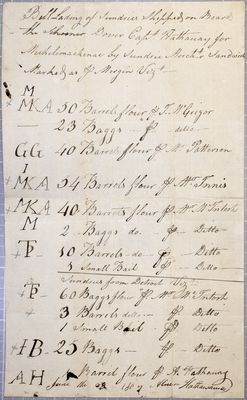 Bill Lading of Sundries Shipped on Board
the Schooner Dover Capt Hathaway for
Michilimackinac by Sundrie Mercts Sandwich
Marked as pr Mergin Vizt
M
MKA 50 Barrels flour pr J. McGrigor
— 23 Baggs — pr — ditto
GG 40 Barrels flour pr W Patterson
I
MKA 54 Barrels flour pr Wm Innis
+MKA 40 Barrels flour pr W McIntosh
M 2 Baggs do pr — Ditto
+TP 10 Barrels do pr — Ditto
1 Small Bail — — Ditto
Sundries from Detroit Vizt
+TP 60 Baggs flour pr W McIntosh
+ 3 Barrels do — pr Ditto
1 Small Bail — pr Ditto
+IB 25 Baggs — pr — Ditto
AH Barrel flour pr A. Hathaway
June the 22 180